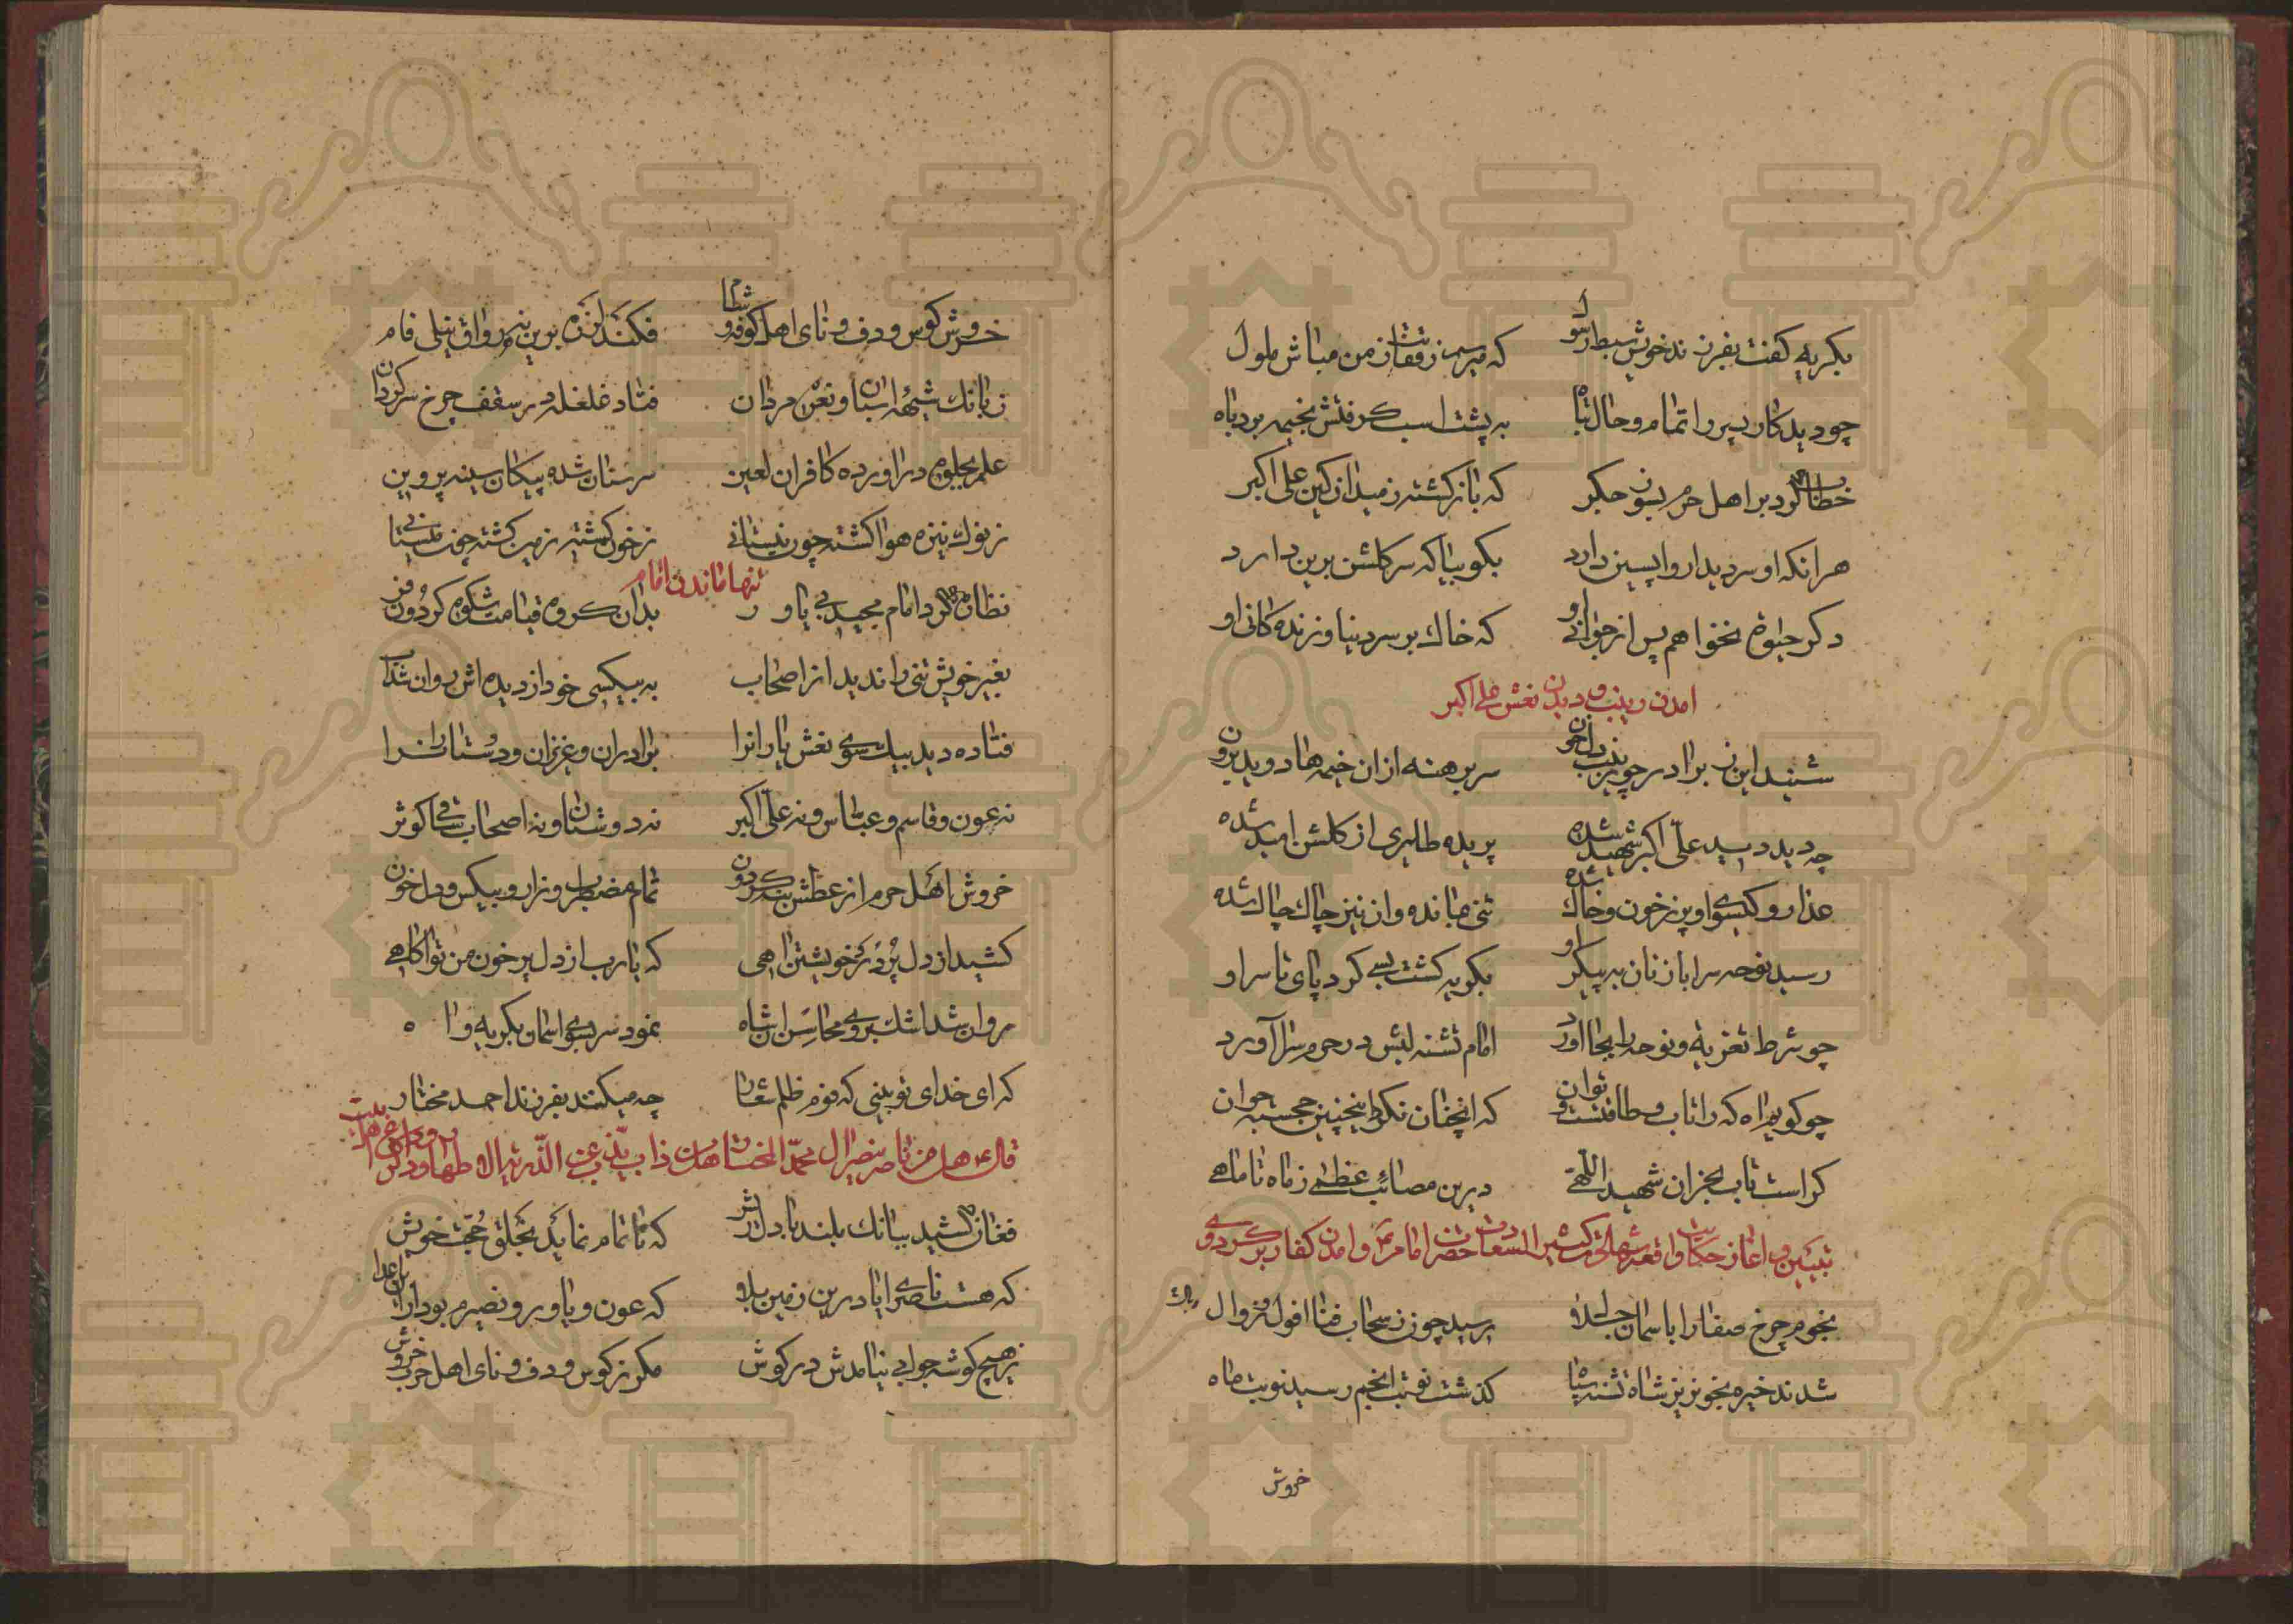 بکریه کفت بفرزند خویش سبط رسول که میرسم ز قفایت ز من مباش ملول
چو دید کار پسر را تمام و حال تباه به پشت اسب کرفتش بخیمه برد پاه
خطاب کرد بر اهل حرم بسوز جکر که بازکشته ز میدان کین علی اکبر
هرانکه او سر دیدار واپسین دارد بکو بیا که سر کلشن برین دارد
دکر حیوة نخواهم پس از جوانی او که خاک بر سر دنیا و زندکانی او
امدن زینب و دیدن نعش علی اکبر
شنید این ز برادر چو زینب دلخون سر برهنه ازان خیمه‌ها دوید برون
چه دید دید علی اکبر شهید شده پریده طایری از کلشن امید شده
عذار و کیسوی او پر ز خون و خاک شده تنی بمانده و ان نیز چاک چاک شده
رسید نوحه سرا با زنان به پیکر او بکریه کشت بسی کرد پای تا سر او
چو شرط تعزیه و نوحه را بجا اورد امام تشنه لبش در حرم سرا آورد
چو کویم اه که را تاب و طاقتست و توان که انچنان نکرد اینچنین حجسته جوان
کراست تاب بجز ان شهید اللهی درین مصائب عظمی ز ماه تا ماهی
تبیین و اغاز حکایات واقعه شهادت کثیر السعادت حضرت امام و امدن کفار بر کردوی
نجوم چرخ صفا را باسمان جلال رسید چون ز سحاب فنا افول و زوال
شدند خیره بخونریز شاه تشنه سپاه کذشت نوبت انجم رسید نوبت ماه
خروش
خروش کوس و دف و نای اهل کوفه و شام فکند لرزه برین نیم رواق نیلی فام
ز بانک شیهه اسبان و نعره مردان فتاد غلغله در سقف چرخ سرکردان
علم بجلوه دراورده کافران لعین سر سنان شده پیکان سینه پروین
ز نوک نیزه هوا کشته چون نیستانی ز خون کشته زمین کشته چون میستانی
تنها ماندن امام
نظاره کرد امام مجید بی یاور بدان کروه قیامت شکوه کردون فر
بغیر خویش تنی را ندید از اصحاب به بیکسی خود از دیده اش روان شد اب
فتاده دید بیک سوی نعش یارانرا برادران و عزیزان و دستارانرا
نه عون و قاسم و عباس و نه علی اکبر نه دوستان و نه اصحاب ساقی کوثر
خروش اهل حرم از عطش به کردون تمام مضطرب و زار و بیکس و دل خون
کشید از دل پر درد خویشتن اهی که یارب از دل پر خون من تو اکاهی
روان شد اشک بروی محاسن ان شاه نمود سر بسوی اسمان بکریه و اه
که ای خدای تو بینی که قوم ظلم شعار چه میکنند بفرزند احمد مختار
قال ع هل من ناصر ینصر ال محمد المختار هل من ذاب یذب عن الذریة
فغان کشید ببانک بلند با دل ریش که تا تمام نماید بخلق حجت خویش
که هست ناصری ایا درین زمین بلا که عون و یاور و نصیرم بود
ز هیچ کوشه جوابی نیامدش در کوش مکر ز کوس و دف و نای اهل حرب خروش